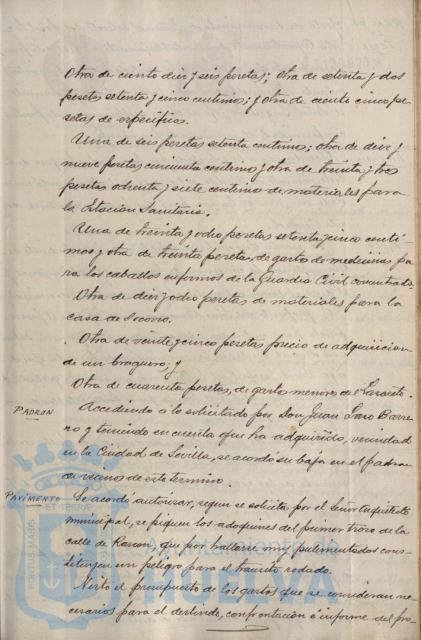 Otra de ciento diez y seis pesetas; otra de setenta y dos
pesetas setenta y cinco centimos; y otra de ciento cinco pe
setas de específicos.
Una de seis pesetas setenta centimos; otra de diez y
nueve pesetas cincuenta centimos y otra de treinta y tres
pesetas ochenta y siete centimos de materiales para
la Estacion Sanitaria.
Una de treinta y ocho pesetas setenta y cinco centi-
mos y otra de treinta pesetas, de gasto de medicinas pa
ra los caballos enfermos de la Guardia Civil concentrada.
Otra de diez y ocho pesetas de materiales para la
casa de Socorro.
Otra de veinte y cinco pesetas precio de adquisicion
de un braguero; y
Otra de cuarenta pesetas, de gastos menores del
PADRON
Accediendo á lo solicitado por Don Juan Barre
ro y teniendo en cuenta que ha adquirido, vecindad
en la Ciudad de Sevilla, se acordó su baja en el padron
de vecinos de este termino.
PAVIMENTO
Se acordó autorizar, segun se solicita por el Señor Arquitecto
municipal, se piquen los adoquines del primer trozo de la
calle de Rascon, que por hallarse muy pulimentados cons-
tituyen un peligro para el transito rodado.
Visto el presupuesto de los gastos que se consideran ne
cesarios para el deslinde, confrontacion é informe del pro
Ayuntamiento de
HUELVA
PORTUS MARIS
ET TERRÆ